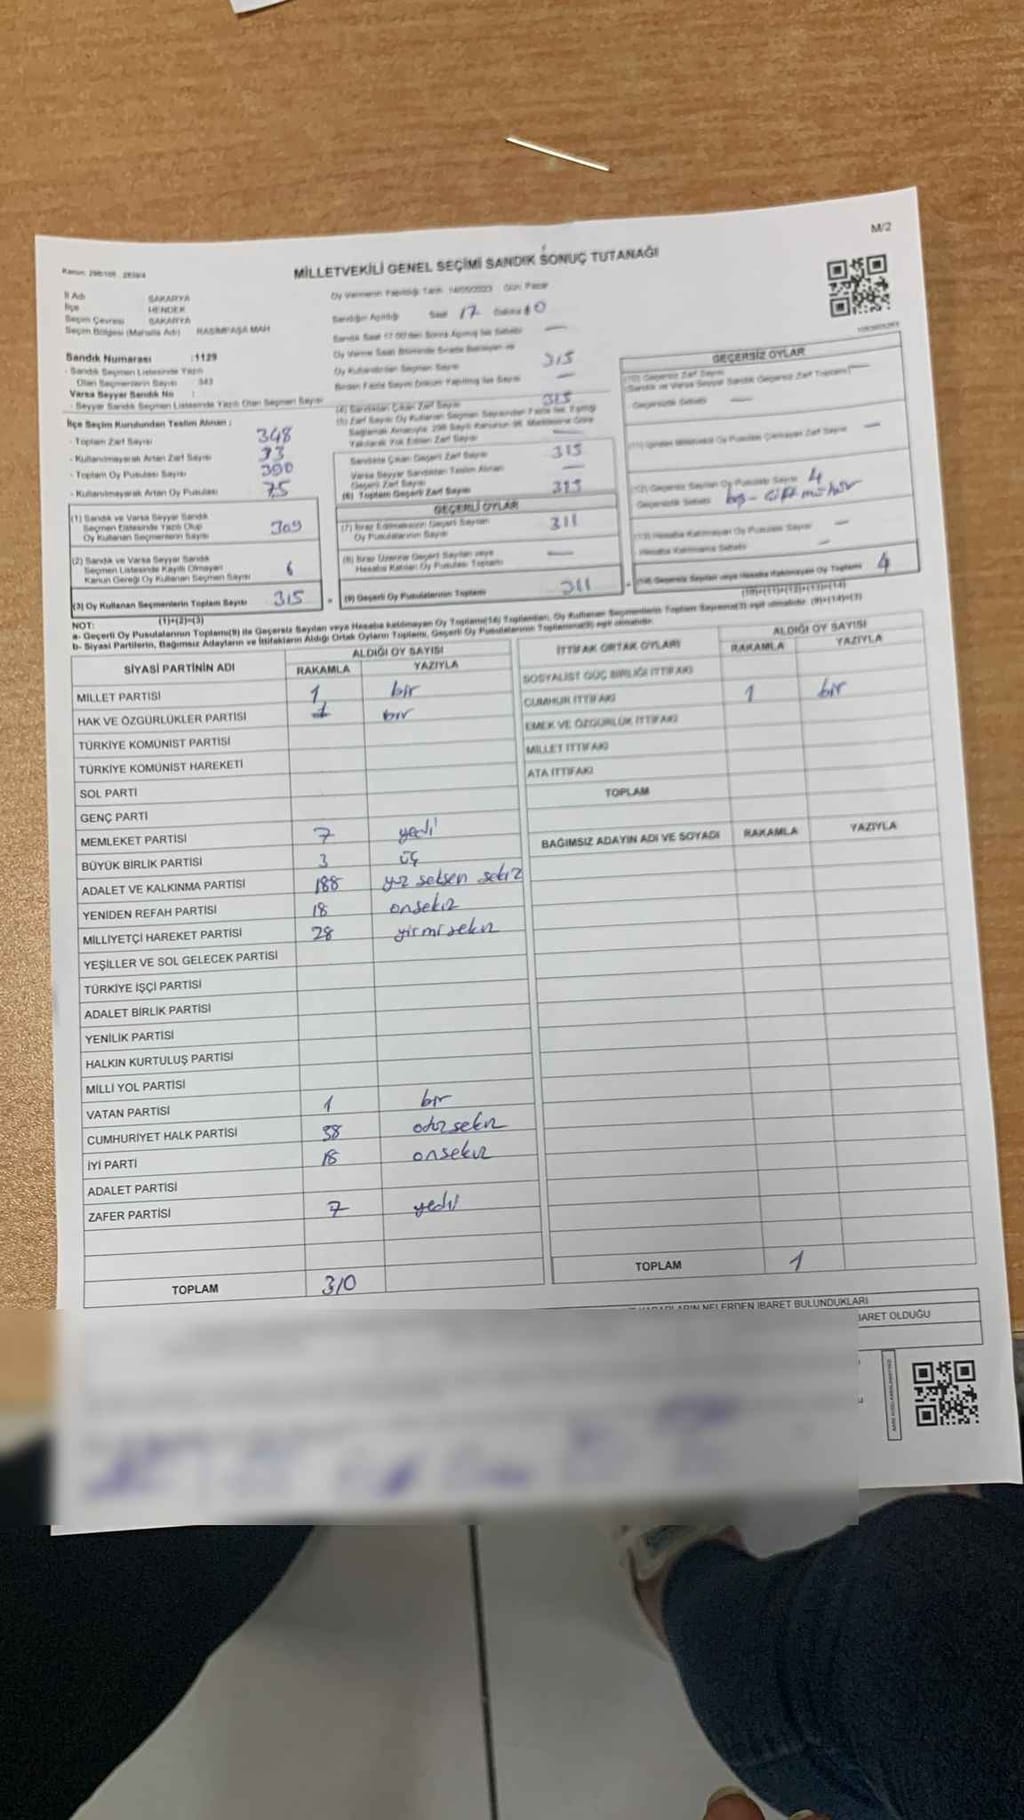 M/2
MİLLETVEKİLİ GENEL SEÇİMİ SANDIK SONUÇ TUTANAĞI
İl Adı SAKARYA
İlçe HENDEK
Seçim Çevresi SAKARYA
Seçim Bölgesi (Mahalle Adı) RASİMPAŞA MAH
Oy Vermenin Yapıldığı Tarih 14/05/2023 Gün: Pazar
Sandığın Açıldığı Saat 17
Sandık Numarası :1129
- Sandık Seçmen Listesinde Yazılı
Olan Seçmenlerin Sayısı 343
Varsa Seyyar Sandık No :
- Seyyar Sandık Seçmen Listesinde Yazılı Olan Seçmen Sayısı
Oy Kullandırılan Seçmen Sayısı 315
Birden Fazla Sayım Döküm Yapılmış İse Sayısı —
İlçe Seçim Kurulundan Teslim Alınan :
- Toplam Zarf Sayısı 348
- Kullanılmayarak Artan Zarf Sayısı 33
- Toplam Oy Pusulası Sayısı
- Kullanılmayarak Artan Oy Pusulası 75
(1) Sandık ve Varsa Seyyar Sandık
Seçmen Listesinde Yazılı Olup
Oy Kullanan Seçmenlerin Sayısı 309
(2) Sandık ve Varsa Seyyar Sandık
Seçmen Listesinde Kayıtlı Olmayan
Kanun Gereği Oy Kullanan Seçmen Sayısı 6
(3) Oy Kullanan Seçmenlerin Toplam Sayısı 315
(1)+(2)=(3)
(4) Sandıktan Çıkan Zarf Sayısı 315
Sandıkta Çıkan Geçerli Zarf Sayısı 315
Varsa Seyyar Sandıktan Teslim Alınan
Geçerli Zarf Sayısı —
(6) Toplam Geçerli Zarf Sayısı 315
GEÇERLİ OYLAR
(7) İtiraz Edilmeksizin Geçerli Sayılan
Oy Pusulalarının Sayısı 311
(8) İtiraz Üzerine Geçerli Sayılan veya
Hesaba Katılan Oy Pusulası Toplamı —
(9) Geçerli Oy Pusulalarının Toplamı 311
GEÇERSİZ OYLAR
Geçersizlik Sebebi —
(12) Geçersiz Sayılan Oy Pusulası Sayısı 4
Geçersizlik Sebebi boş - çift mühür
(13) Hesaba Katılmayan Oy Pusulası Sayısı —
Hesaba Katılmama Sebebi —
(14) Geçersiz Sayılan veya Hesaba Katılmayan Oy Toplamı 4
(10)+(11)+(12)+(13)=(14)
NOT:
a- Geçerli Oy Pusulalarının Toplamı(9) ile Geçersiz Sayılan veya Hesaba katılmayan Oy Toplamı(14) Toplamları, Oy Kullanan Seçmenlerin Toplam Sayısına(3) eşit olmalıdır. (9)+(14)=(3)
b- Siyasi Partilerin, Bağımsız Adayların ve İttifakların Aldığı Ortak Oyların Toplamı, Geçerli Oy Pusulalarının Toplamına(9) eşit olmalıdır.
SİYASİ PARTİNİN ADI ALDIĞI OY SAYISI
RAKAMLA YAZIYLA
MİLLET PARTİSİ 1 bir
HAK VE ÖZGÜRLÜKLER PARTİSİ 1 bir
TÜRKİYE KOMÜNİST PARTİSİ
TÜRKİYE KOMÜNİST HAREKETİ
SOL PARTİ
GENÇ PARTİ
MEMLEKET PARTİSİ 7 yedi
BÜYÜK BİRLİK PARTİSİ 3 üç
ADALET VE KALKINMA PARTİSİ 188 yüz seksen sekiz
YENİDEN REFAH PARTİSİ 18 onsekiz
MİLLİYETÇİ HAREKET PARTİSİ 28 yirmisekiz
YEŞİLLER VE SOL GELECEK PARTİSİ
TÜRKİYE İŞÇİ PARTİSİ
ADALET BİRLİK PARTİSİ
YENİLİK PARTİSİ
HALKIN KURTULUŞ PARTİSİ
MİLLİ YOL PARTİSİ
VATAN PARTİSİ 1 bir
CUMHURİYET HALK PARTİSİ 38 otuzsekiz
İYİ PARTİ 18 onsekiz
ADALET PARTİSİ
ZAFER PARTİSİ 7 yedi
TOPLAM 310
İTTİFAK ORTAK OYLARI ALDIĞI OY SAYISI
RAKAMLA YAZIYLA
SOSYALİST GÜÇ BİRLİĞİ İTTİFAKI
CUMHUR İTTİFAKI 1 bir
EMEK VE ÖZGÜRLÜK İTTİFAKI
MİLLET İTTİFAKI
ATA İTTİFAKI
TOPLAM
BAĞIMSIZ ADAYIN ADI VE SOYADI RAKAMLA YAZIYLA
TOPLAM 1
NELERDEN İBARET BULUNDUKLARI
İBARET OLDUĞU